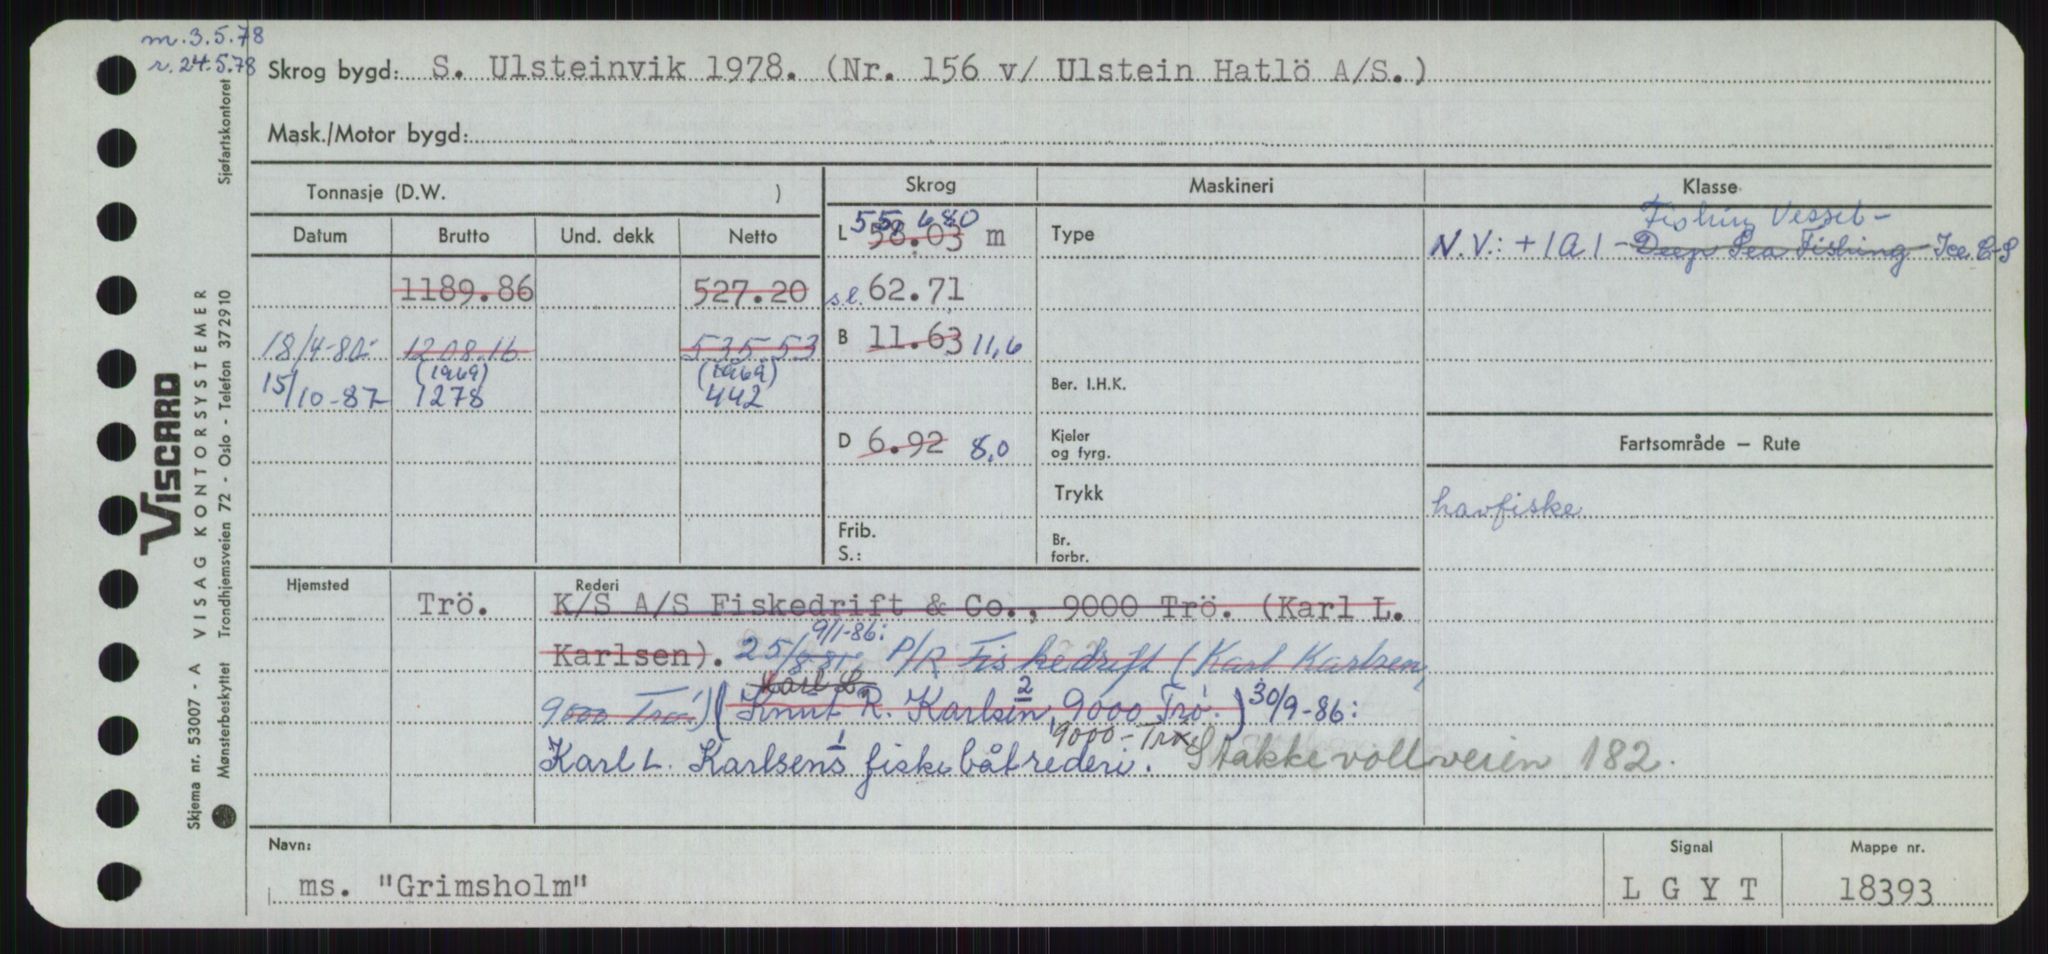 m. 3.5.78
r. 24.5.78
Skrog bygd: S. Ulsteinvik 1978. (Nr. 156 v/ Ulstein Hatlö A/S.)
Mask./Motor bygd:
Tonnasje (D.W. )
Skrog
Maskineri
Klasse
Datum
Brutto
Und. dekk
Netto
55,680
L 58.03 m
Type
Fishing Vessel -
N.V.: + 1A1 - Deep Sea Fishing - Ice C-S
1189.86
527.20
s.l. 62.71
18/4-80:
1208.16
535.53
B 11.63 11,6
(1969)
(1969)
15/10-87
1278
442
Ber. I.H.K.
D 6.92 8,0
Kjeler
og fyrg.
Fartsområde — Rute
Trykk
havfiske
Frib.
S.:
Br.
forbr.
Hjemsted
Trö.
Rederi
K/S A/S Fiskedrift & Co., 9000 Trö. (Karl L.
9/1-86:
Karlsen). 25/8 85: P/R Fiskedrift (Karl Karlsen,
Karl L. 2
9000 Trö) (Knut R. Karlsen, 9000 Trö.) 30/9-86:
9000 - Trö.
1
Karl L. Karlsens fiskebåtrederi. Stakkevollveien 182.
Navn:
ms. "Grimsholm"
Signal
L G Y T
Mappe nr.
18393
Sjøfartskontoret
VISCARD
VISAG KONTORSYSTEMER
Trondhjemsveien 72 - Oslo - Telefon 372910
Skjema nr. 53007 - A
Mønsterbeskyttet